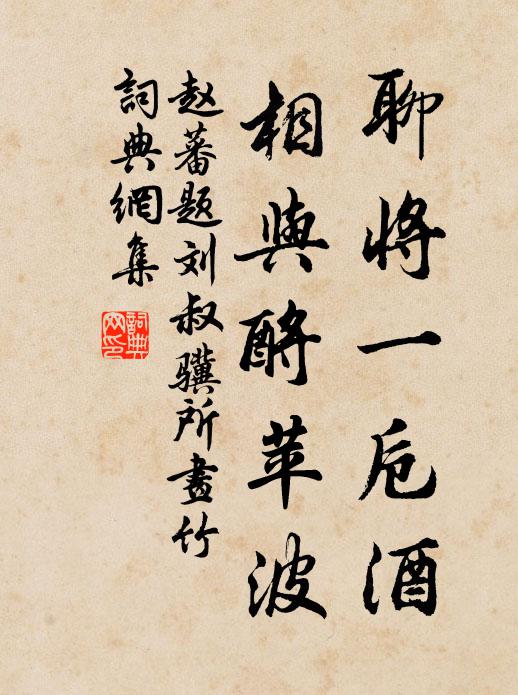 聊将一卮酒
相與酹苹波
赵蕃题刘叔骥所畫竹
詞典網集
詞典網印